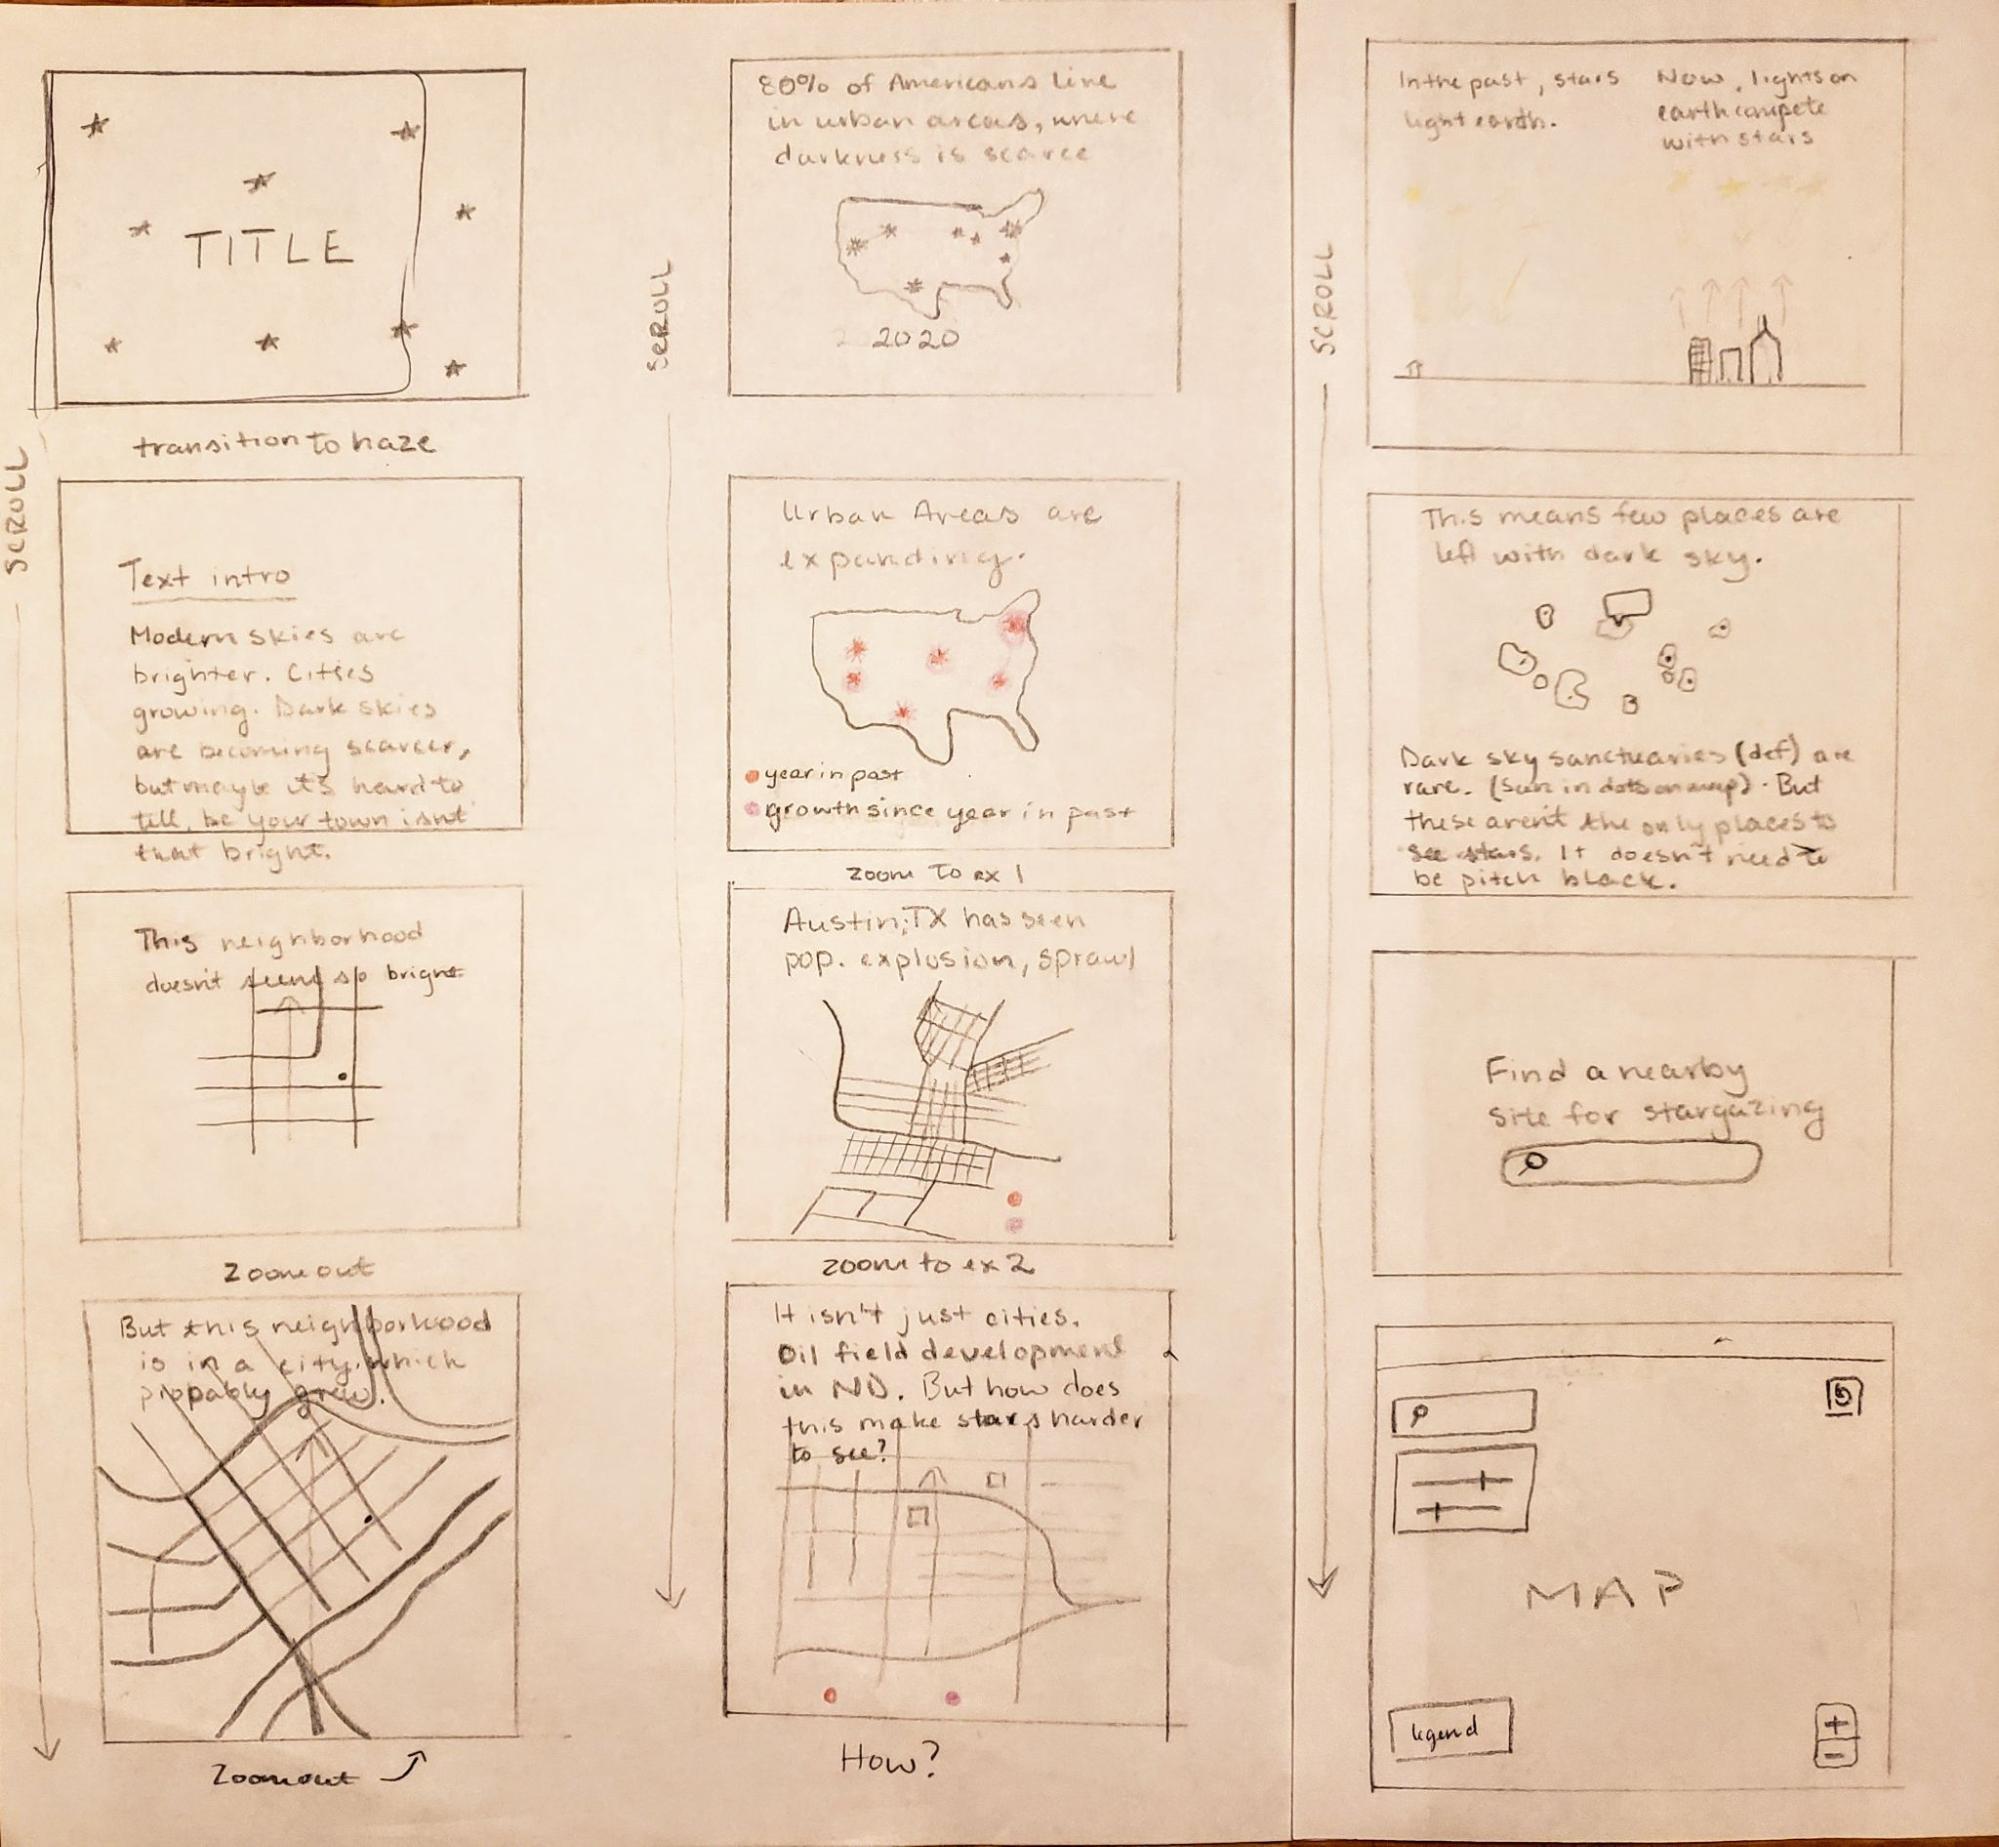 TITLE
transition to haze
SCROLL
Text intro
Modern skies are
brighter. Cities
growing. Dark skies
are becoming scarcer,
but maybe it's hard to
tell, bc your town isn't
that bright.
This neighborhood
doesn't seem so bright
Zoom out
But this neighborhood
is in a city, which
probably grew.
Zoom out
SCROLL
80% of Americans live
in urban areas, where
darkness is scarce
2020
Urban Areas are
expanding.
year in past
growth since year in past
zoom to ex 1
Austin, TX has seen
pop. explosion, sprawl
zoom to ex 2
It isn't just cities.
Oil field development
in ND. But how does
this make stars harder
to see?
How?
SCROLL
In the past, stars
light earth.
Now, lights on
earth compete
with stars
This means few places are
left with dark sky.
Dark sky sanctuaries (def) are
rare. (Sum in dots on map). But
these aren't the only places to
see stars. It doesn't need to
be pitch black.
Find a nearby
site for stargazing
MAP
legend
+
-